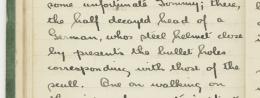 some unfortunate Tommy; there,
the half decayed head of a
German, who's steel helmet close
by presents the bullet holes
corresponding with those of the
scull. One on walking on